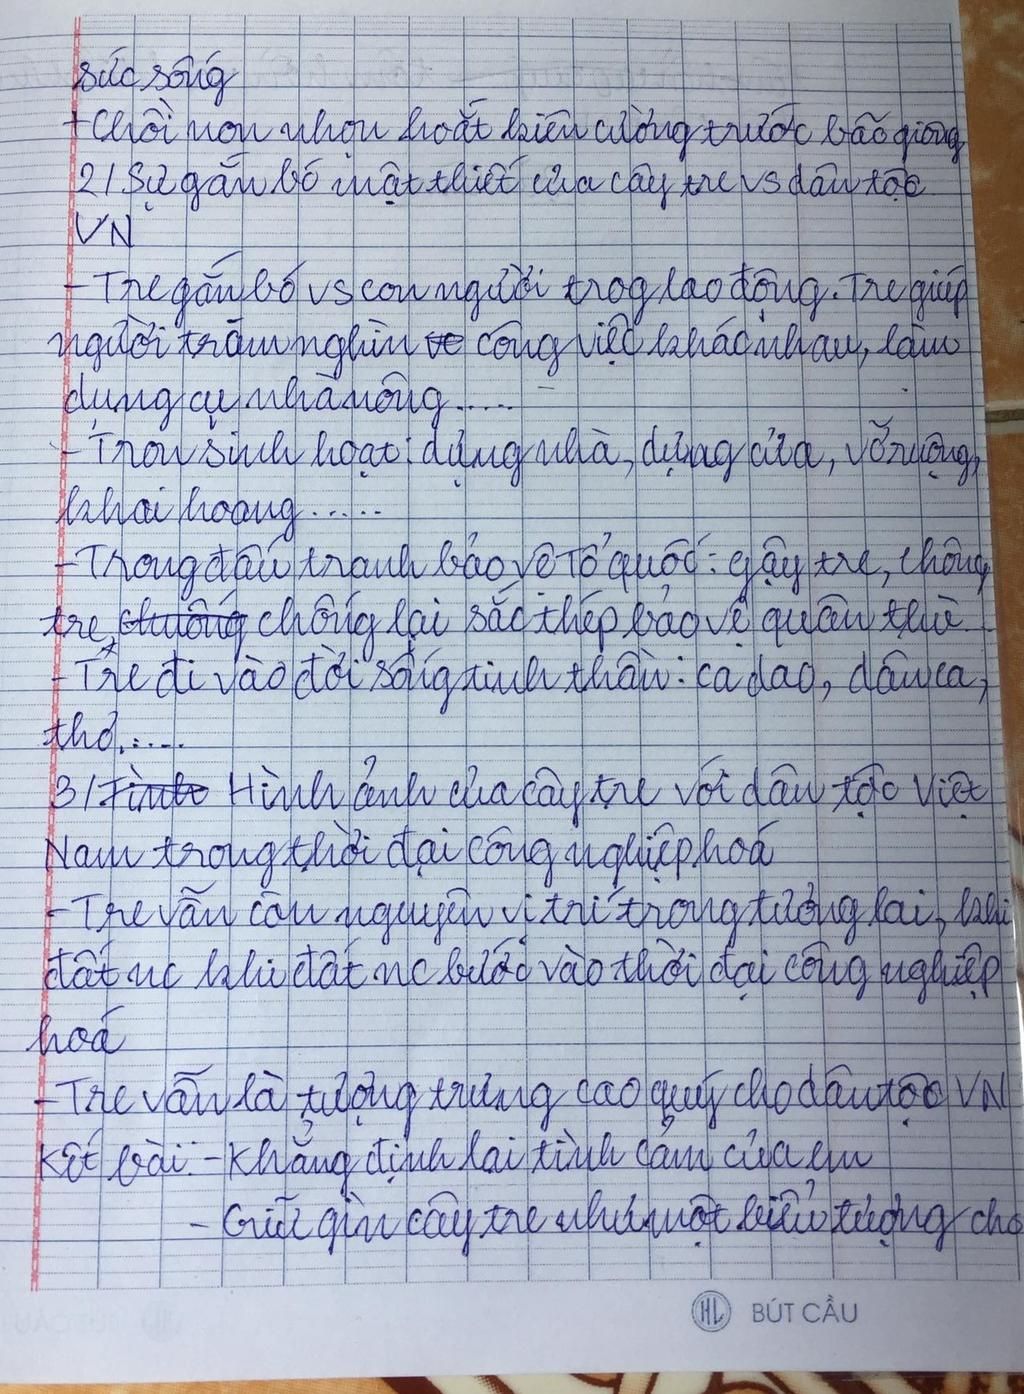 sức sống
+ Chồi non nhọn hoắt kiên cường trước bão giông
2/ Sự gắn bó mật thiết của cây tre vs dân tộc
VN
- Tre gắn bó vs con người trog lao động. Tre giúp
người trăm nghìn công việc khác nhau, làm
dụng cụ nhà nông.....
- Tron sinh hoạt: dựng nhà, dựng cửa, vỡ ruộng,
khai hoang.....
- Trong đấu tranh bảo vệ Tổ quốc: gậy tre, chông
tre, chống lại sắc thép bảo vệ quân thù
- Tre đi vào đời sống tinh thần: ca dao, dân ca,
thơ,.....
3/ Hình ảnh của cây tre với dân tộc Việt
Nam trong thời đại công nghiệp hoá
- Tre vẫn còn nguyên vị trí trong tương lai, khi
đất nc khi đất nc bước vào thời đại công nghiệp
hoá
- Tre vẫn là tượng trưng cao quý cho dân tộc VN
Kết bài: - Khẳng định lại tình cảm của em
- Giữ gìn cây tre như một biểu tượng cho
HL BÚT CẦU